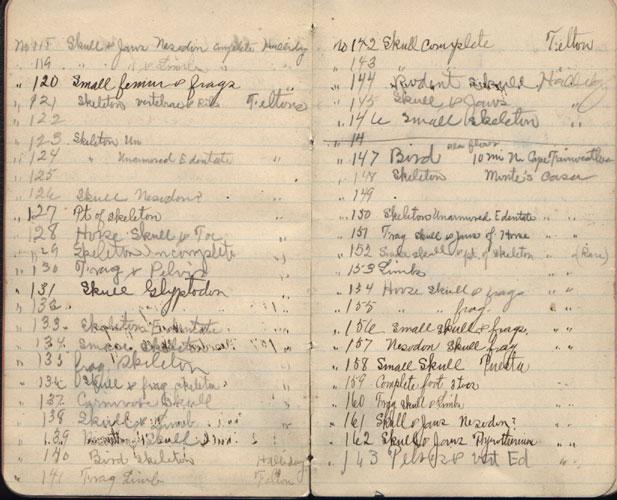 No 118 Skull & Jaws Nesodon complete Halliday
" 119 " " & Limbs "
" 120 Small femur & frags "
" 121 Skeleton vertebrae & Ribs Felton's
" 122
" 123 Skeleton Un
" 124 " Unarmored Edentate "
" 125
" 126 Skull Nesodon? "
" 127 Pt of Skeleton "
" 128 Horse Skull & Toe "
" 129 Skeleton incomplete "
" 130 Frag & Pelvis "
" 131 Skull Glyptodon "
" 132
" 133 Skeleton Edentate "
" 134 Small Skeleton "
" 135 frag. Skeleton
" 136 Skull & frag skeleton "
" 137 Carnivore Skull
" 138 Skull & Limb
" 139 Skull
" 140 Bird Skeleton Halliday
" 141 Frag Limb Felton
No 142 Skull Complete Felton
" 143 "
" 144 Rodent Skull Halliday
" 145 Skull & Jaws "
" 146 Small Skeleton "
" 14
" 147 Bird near 10 mi N. Cape Fairweather
" 148 Skeleton Monte's Casa
" 149
" 150 Skeleton Unarmored Edentate " "
" 151 Frag Skull & Jaws of Horse " "
" 152 Skull & pt. of Skeleton " (Rare)
" 153 Limbs
" 154 Horse Skull & frags " "
" 155 " " frag. " "
" 156 Small Skull & frags. " "
" 157 Nesodon Skull frag " "
" 158 Small Skull Puesta
" 159 Complete foot "
" 160 Frag Skull & Limbs "
" 161 Skull & Jaws Nesodon? "
" 162 Skull & Jaws "
" 163 Pelvis & vert Ed "